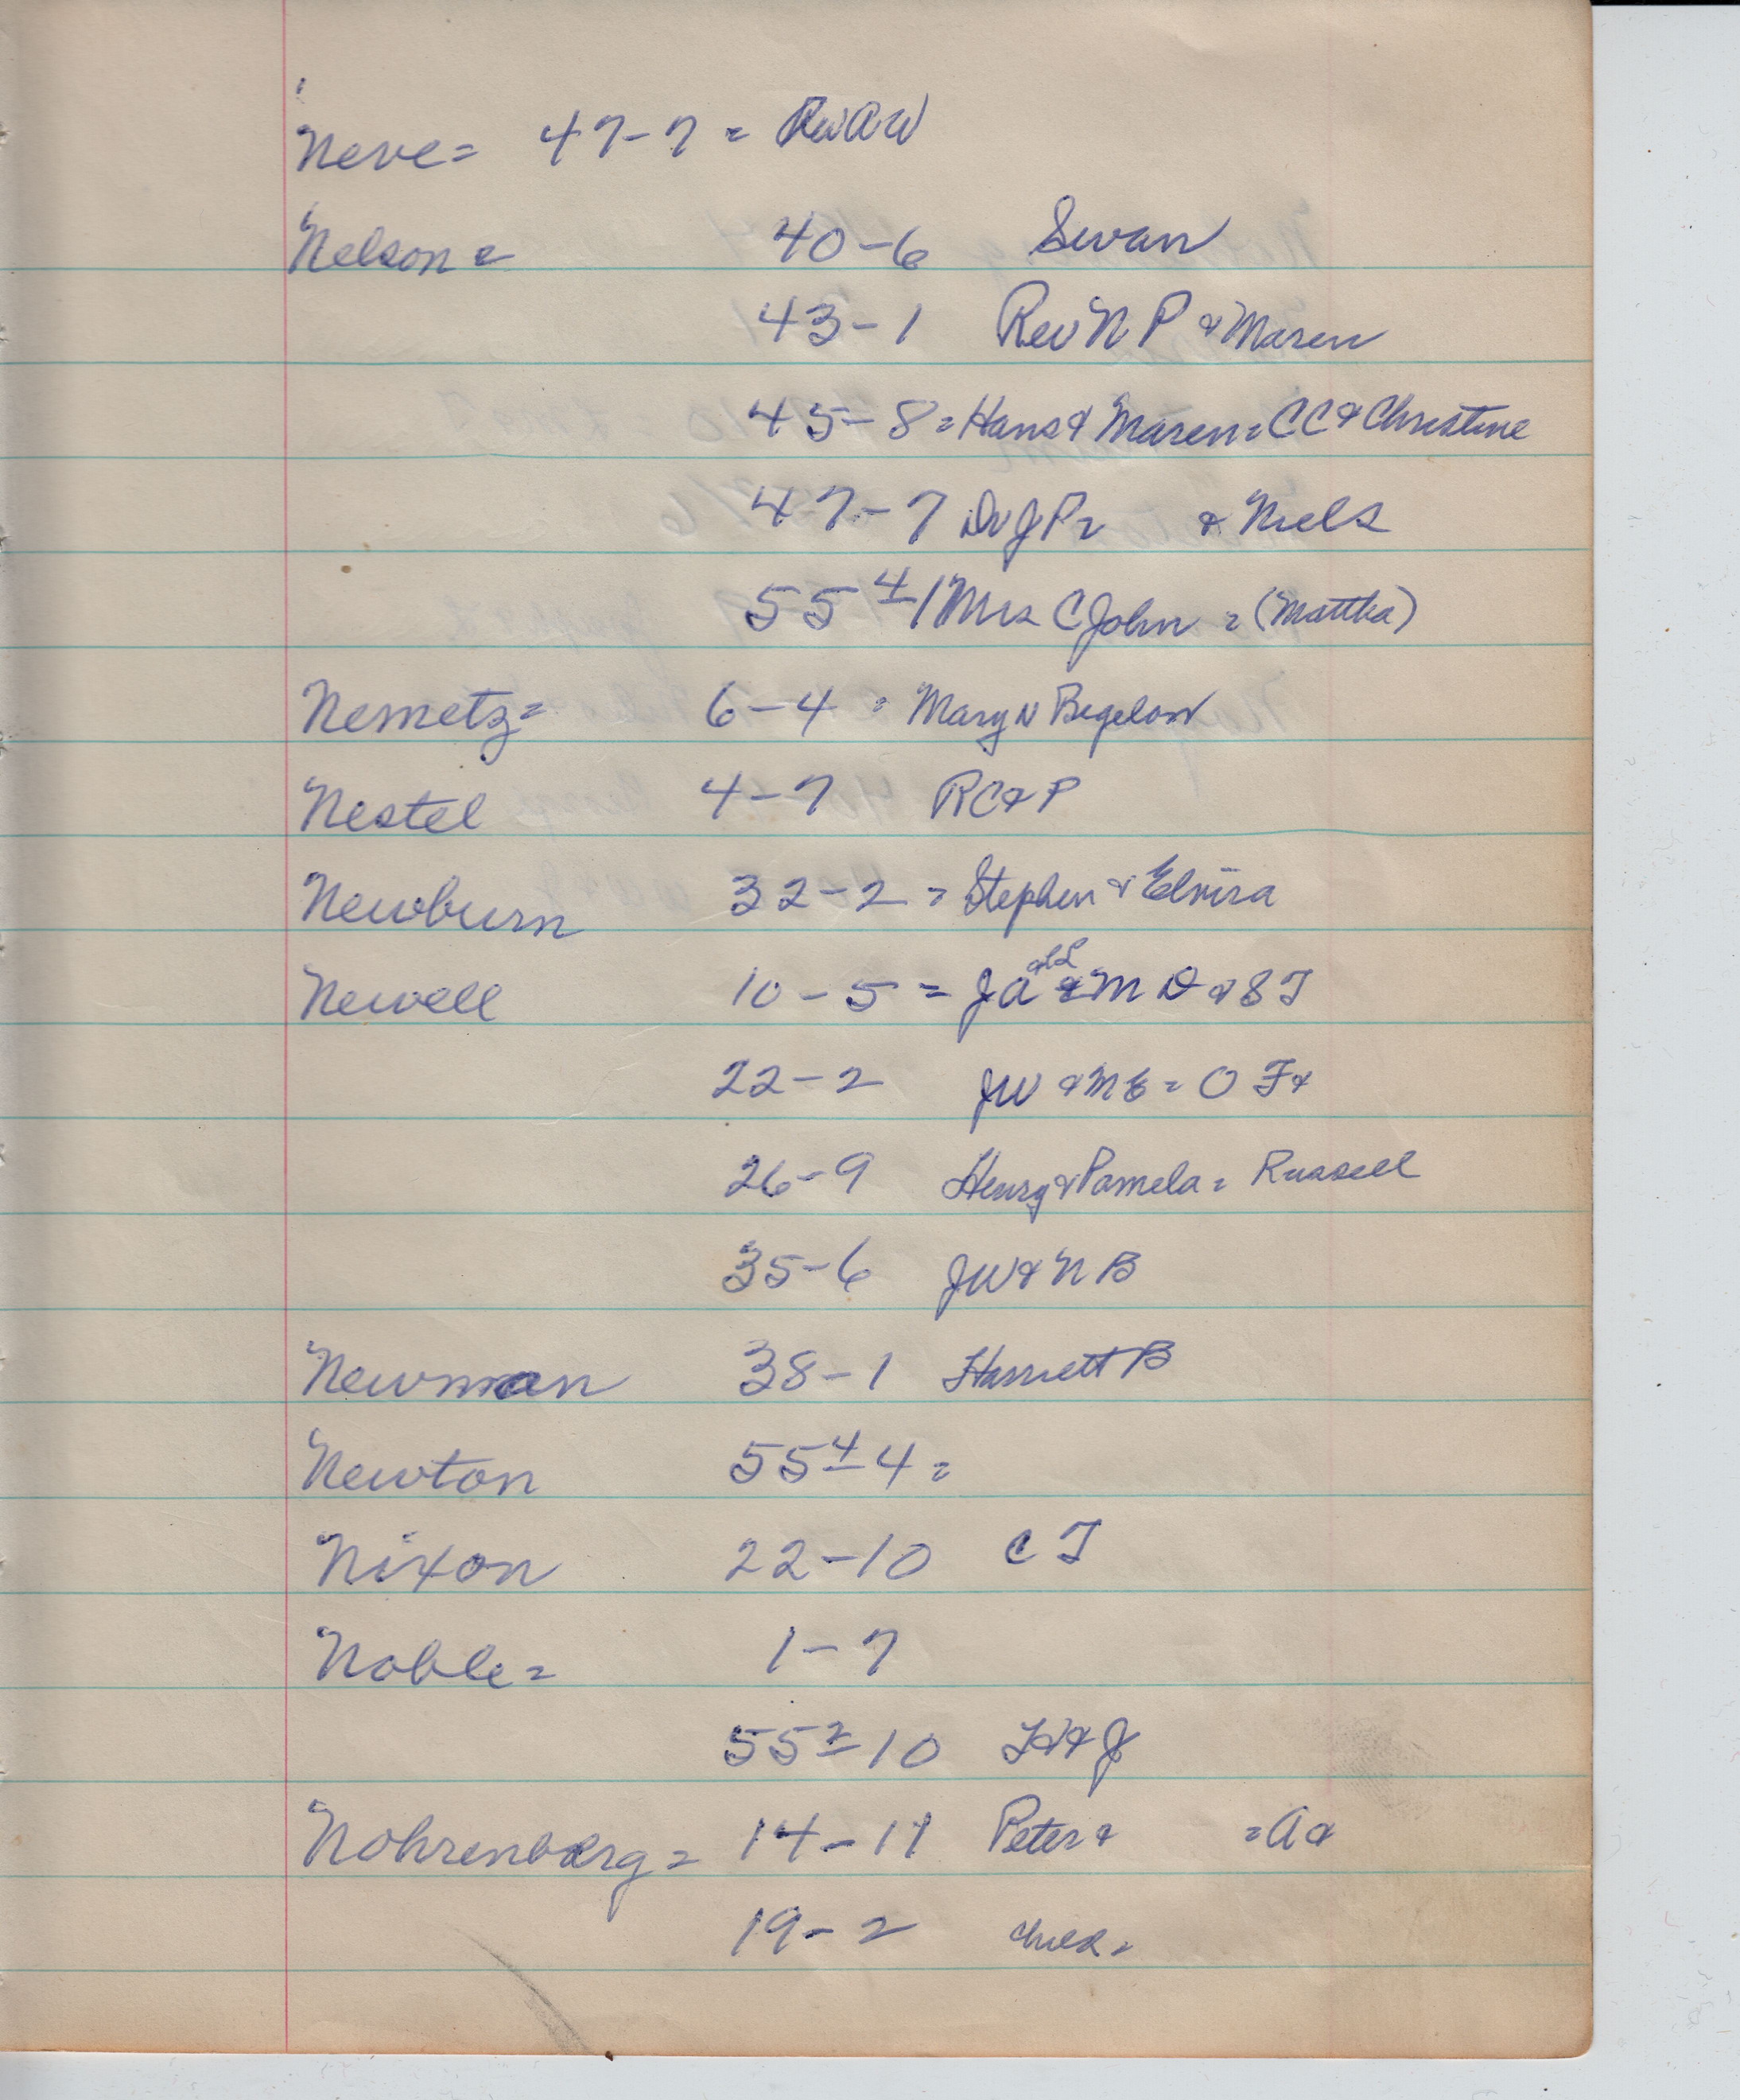 Neve = 47-7 = Rev A W
Nelson = 40-6 Swan
43-1 Rev N P & Maren
45-8 = Hans & Maren = CC & Christine
47-7 Dr J P = & Niels
55 4/1 Mrs C John = (Mattha)
Nemetz = 6-4 = Mary N Begelow
Nestel 4-7 RC & P
Newburn 32-2 = Stephen & Elvira
Newell 10-5 = J A & M D & S T
22-2 JW & M E = O F &
26-9 Henry & Pamela = Russell
35-6 JW & N B
Newman 38-1 Harriett B
Newton 55 4-4 =
Nixon 22-10 C T
Noble = 1-7
55 2-10 & J
Nohrenberg = 14-11 Peter & = A &
19-2 child =